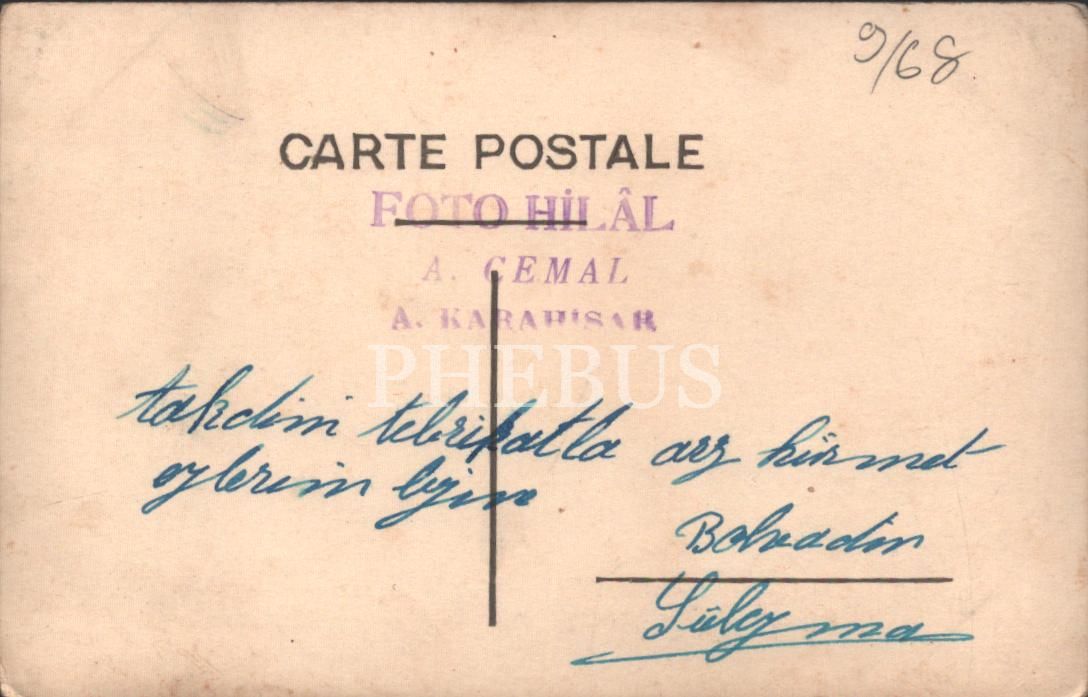 9/68
CARTE POSTALE
FOTO HİLÂL
A. CEMAL
A. KARAHİSAR
PHEBUS
takdimi tebrikatla arz hürmet
eylerim
Bolvadin